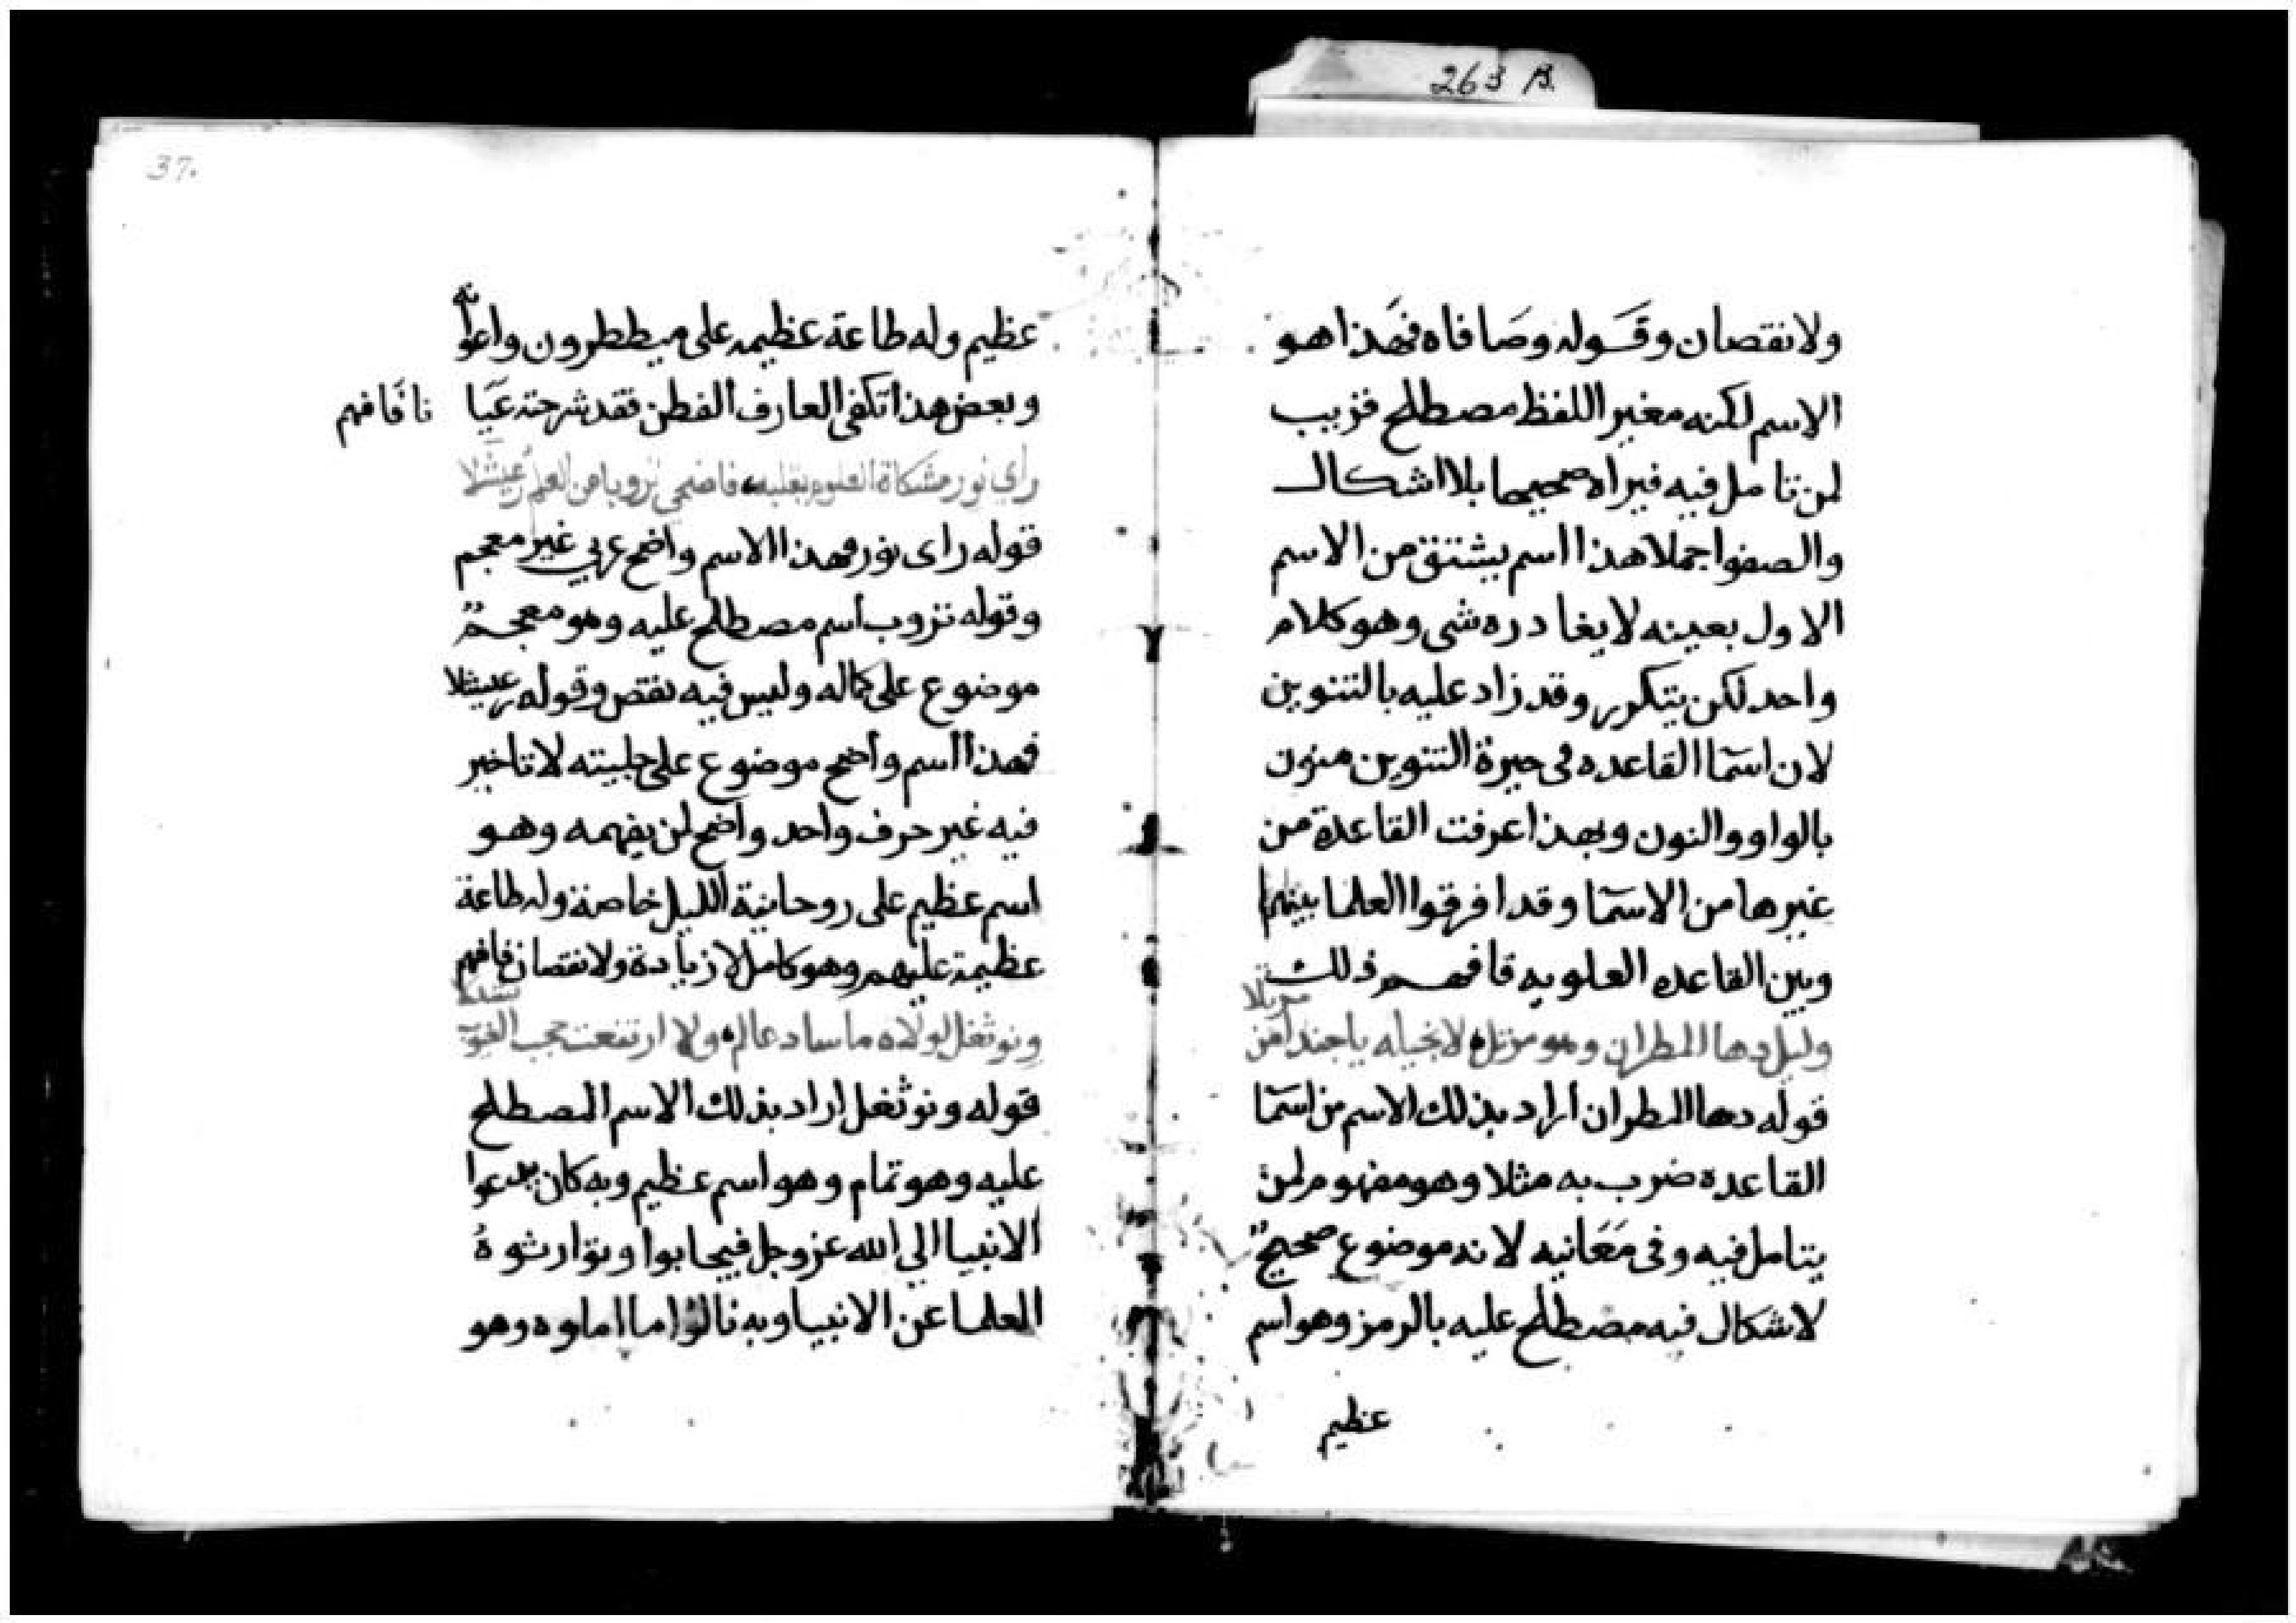 263 B.
ولا نقصان وقوله وصافاه فهذا هو
الاسم لكنه مغير اللفظ مصطلح قريب
لمن تامل فيه فيراه صحيحا بلا اشكال
والصفوا جملا هذا اسم يشتق من الاسم
الاول بعينه لا يغادره شي وهو كلام
واحد لكن يتكرر وقد زاد عليه بالتنوين
لان اسما القاعده في حيرة التنوين منون
بالواو والنون وبهذا عرفت القاعدة من
غيرها من الاسما وقد افرقوا العلما بينها
وبين القاعده العلويه فافهم ذلك
وليل دها المطران وهو مرتل لا نخباه يا جند امن
قوله دها المطران اراد بذلك الاسم من اسما
القاعده ضرب به مثلا وهو مفهوم لمن
يتامل فيه وفي معانيه لانه موضوع صحيح
لاشكال فيه مصطلح عليه بالرمز وهو اسم
عظيم
37.
عظيم وله طاعة عظيمه على ميططرون واعوانه
وبعض هذا تكفي العارف الفطن فقد شرحته عيانا فافهم
راي نور مشكاة العلوم بقلبه فاضحي نزوبا من العلم عيثلا
قوله راى نور فهذا الاسم واضح عربي غير معجم
وقوله نزوب اسم مصطلح عليه وهو معجم
موضوع على كماله وليس فيه نقص وقوله عيثلا
فهذا اسم واضح موضوع على جليته لا تاخير
فيه غير حرف واحد واضح لمن يفهمه وهو
اسم عظيم على روحانية الليل خاصة وله طاعة
عظيمة عليهم وهو كامل لا زيادة ولا نقصان فافهم
ونوثغل لولاه ما ساد عالم ولا ارتفعت حجب
قوله ونوثغل اراد بذلك الاسم المصطلح
عليه وهو تمام وهو اسم عظيم وبه كان يدعوا
الانبيا الي الله عز وجل فيجابوا وتوارثوه
العلما عن الانبيا وبه نالوا ما املوه وهو